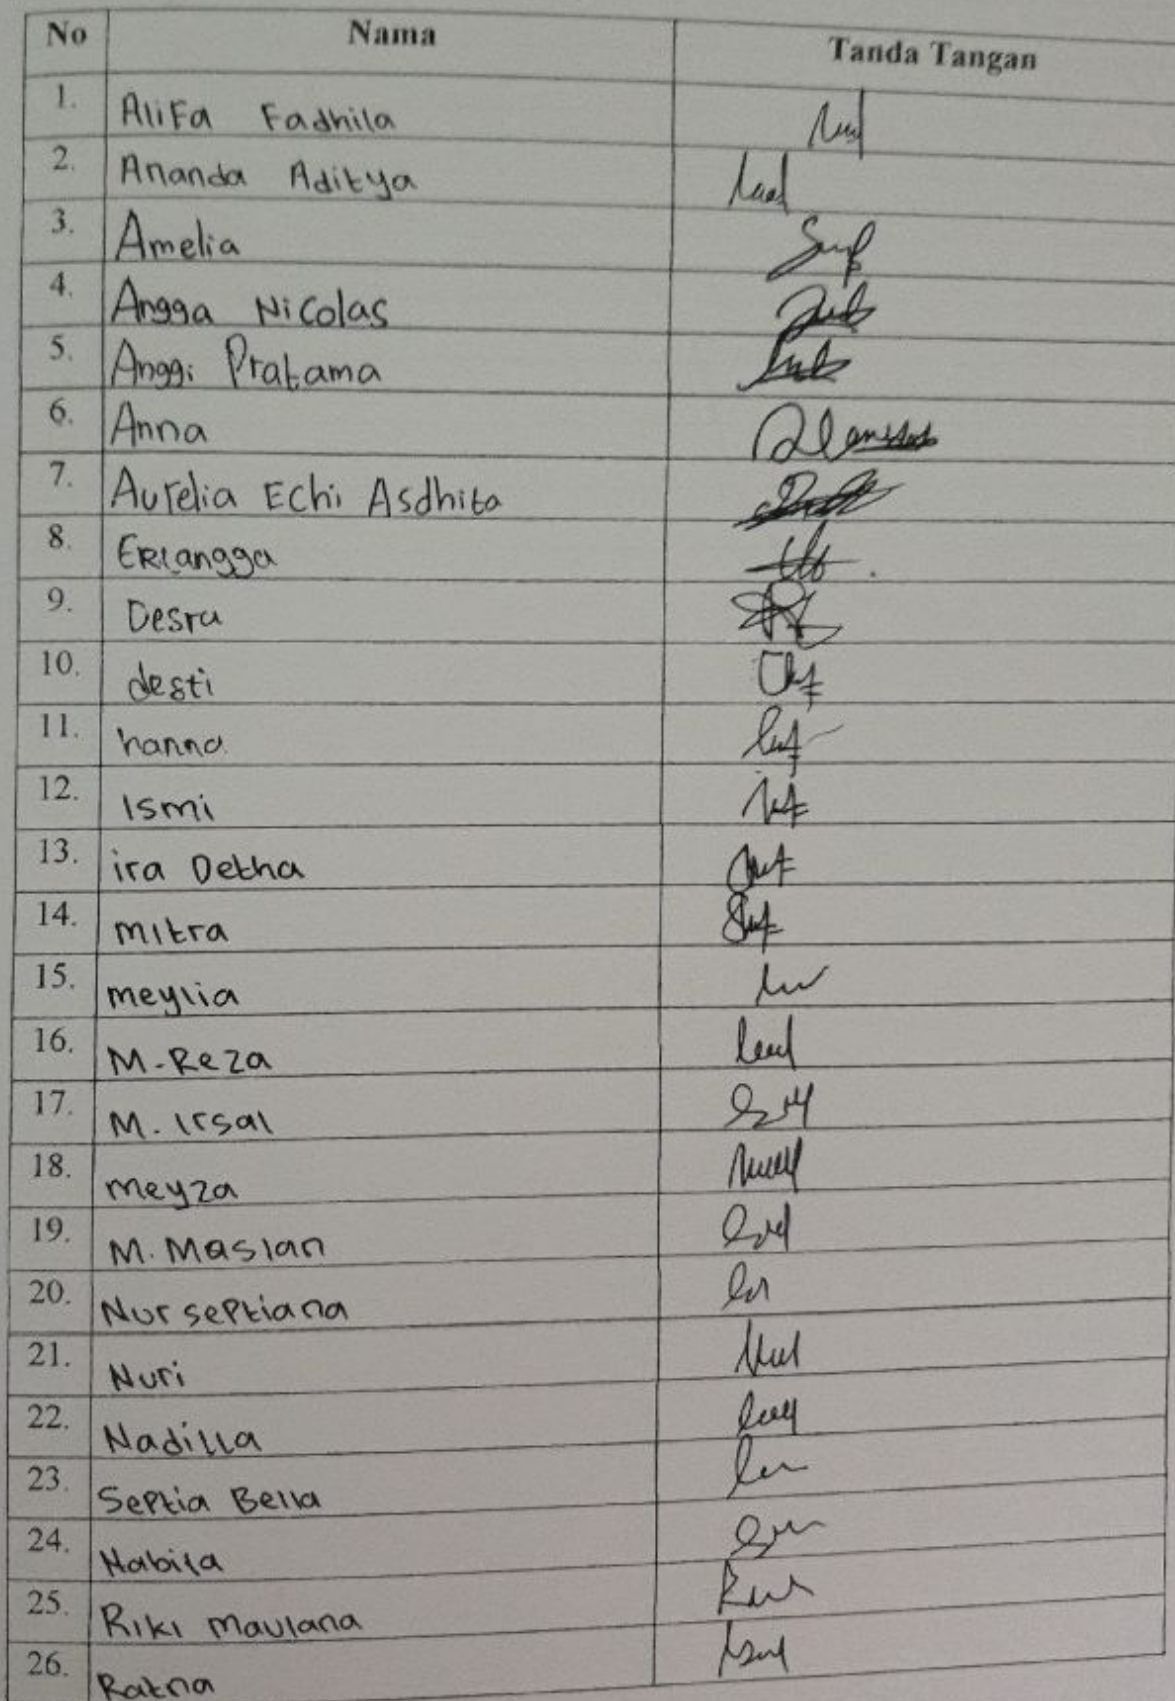 No Nama Tanda Tangan
1. Alifa Fadhila
2. Ananda Aditya
3. Amelia
4. Angga Nicolas
5. Anggi Pratama
6. Anna
7. Aurelia Echi Asdhita
8. Erlangga
9. Desra
10. desti
11. hanna
12. Ismi
13. ira Detha
14. mitra
15. meylia
16. M. Reza
17. M. Irsal
18. meyza
19. M. Maslan
20. Nur septiana
21. Nuri
22. Nadilla
23. Septia Bella
24. Nabila
25. Riki maulana
26. Ratna